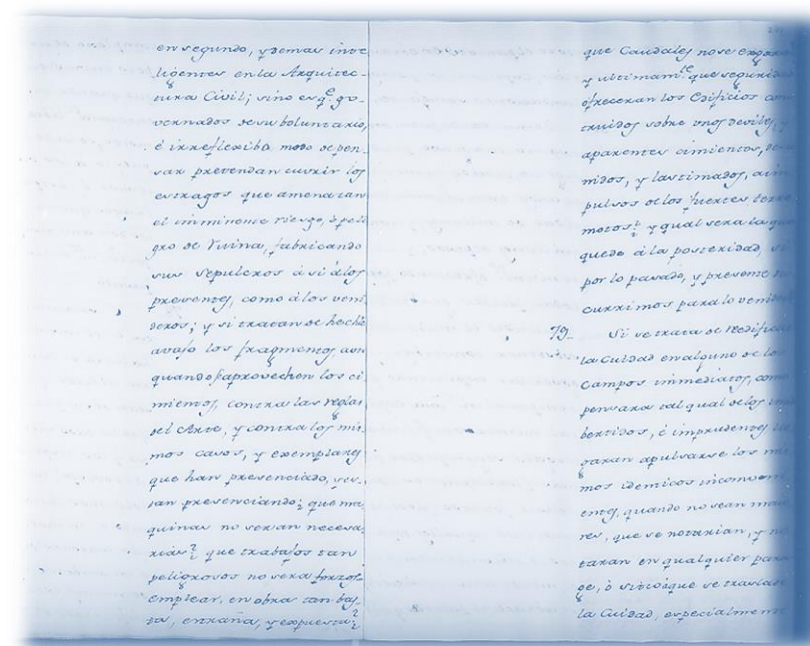 en segundo, y demas inte
ligentes en la Arquitec-
tura Civil; sino es q.e go-
vernados de su boluntario,
é irreflexibo modo de pen-
sar pretendan cubrir los
estragos que amenazan
el imminente riesgo, ò peli
gro de Ruina, fabricando
sus sepulcros asi à los
presentes, como à los veni
deros; y si tratan de hechar
avajo los fragmentos aun
quando aprovechen los ci
mientos, contra las reglas
del Arte, y contra los mis
mos casos, y exemplares
que han presenciado, y es-
tan presenciando; que ma
quinas no seran necesa
rias? que trabajos tan
peligrosos no sera forzoso
emplear, en obra tan bas-
ta, extraña, y expuesta?
que Caudales no se
y ultimam.te que seguridad
ofreceran los Edificios
truidos sobre unos deviles, y
aparentes cimientos,
midos, y lastimados, a
pulsos de los fuertes terre
motos? y qual sera la que
quede à la posteridad, si
por lo pasado, y presente
currimos para lo venid
79_ Si se trata de redifica
la Ciudad en alguno de los
Campos immediatos, como
pensara tal qual de los
bertidos, é imprudentes
taran apulsarse los mis
mos idemicos inconveni
entes, quando no sean mayo
res, que se notarian, y no
taran en qualquier para
ge, ò sitio à que se traslade
la Ciudad, especialmente